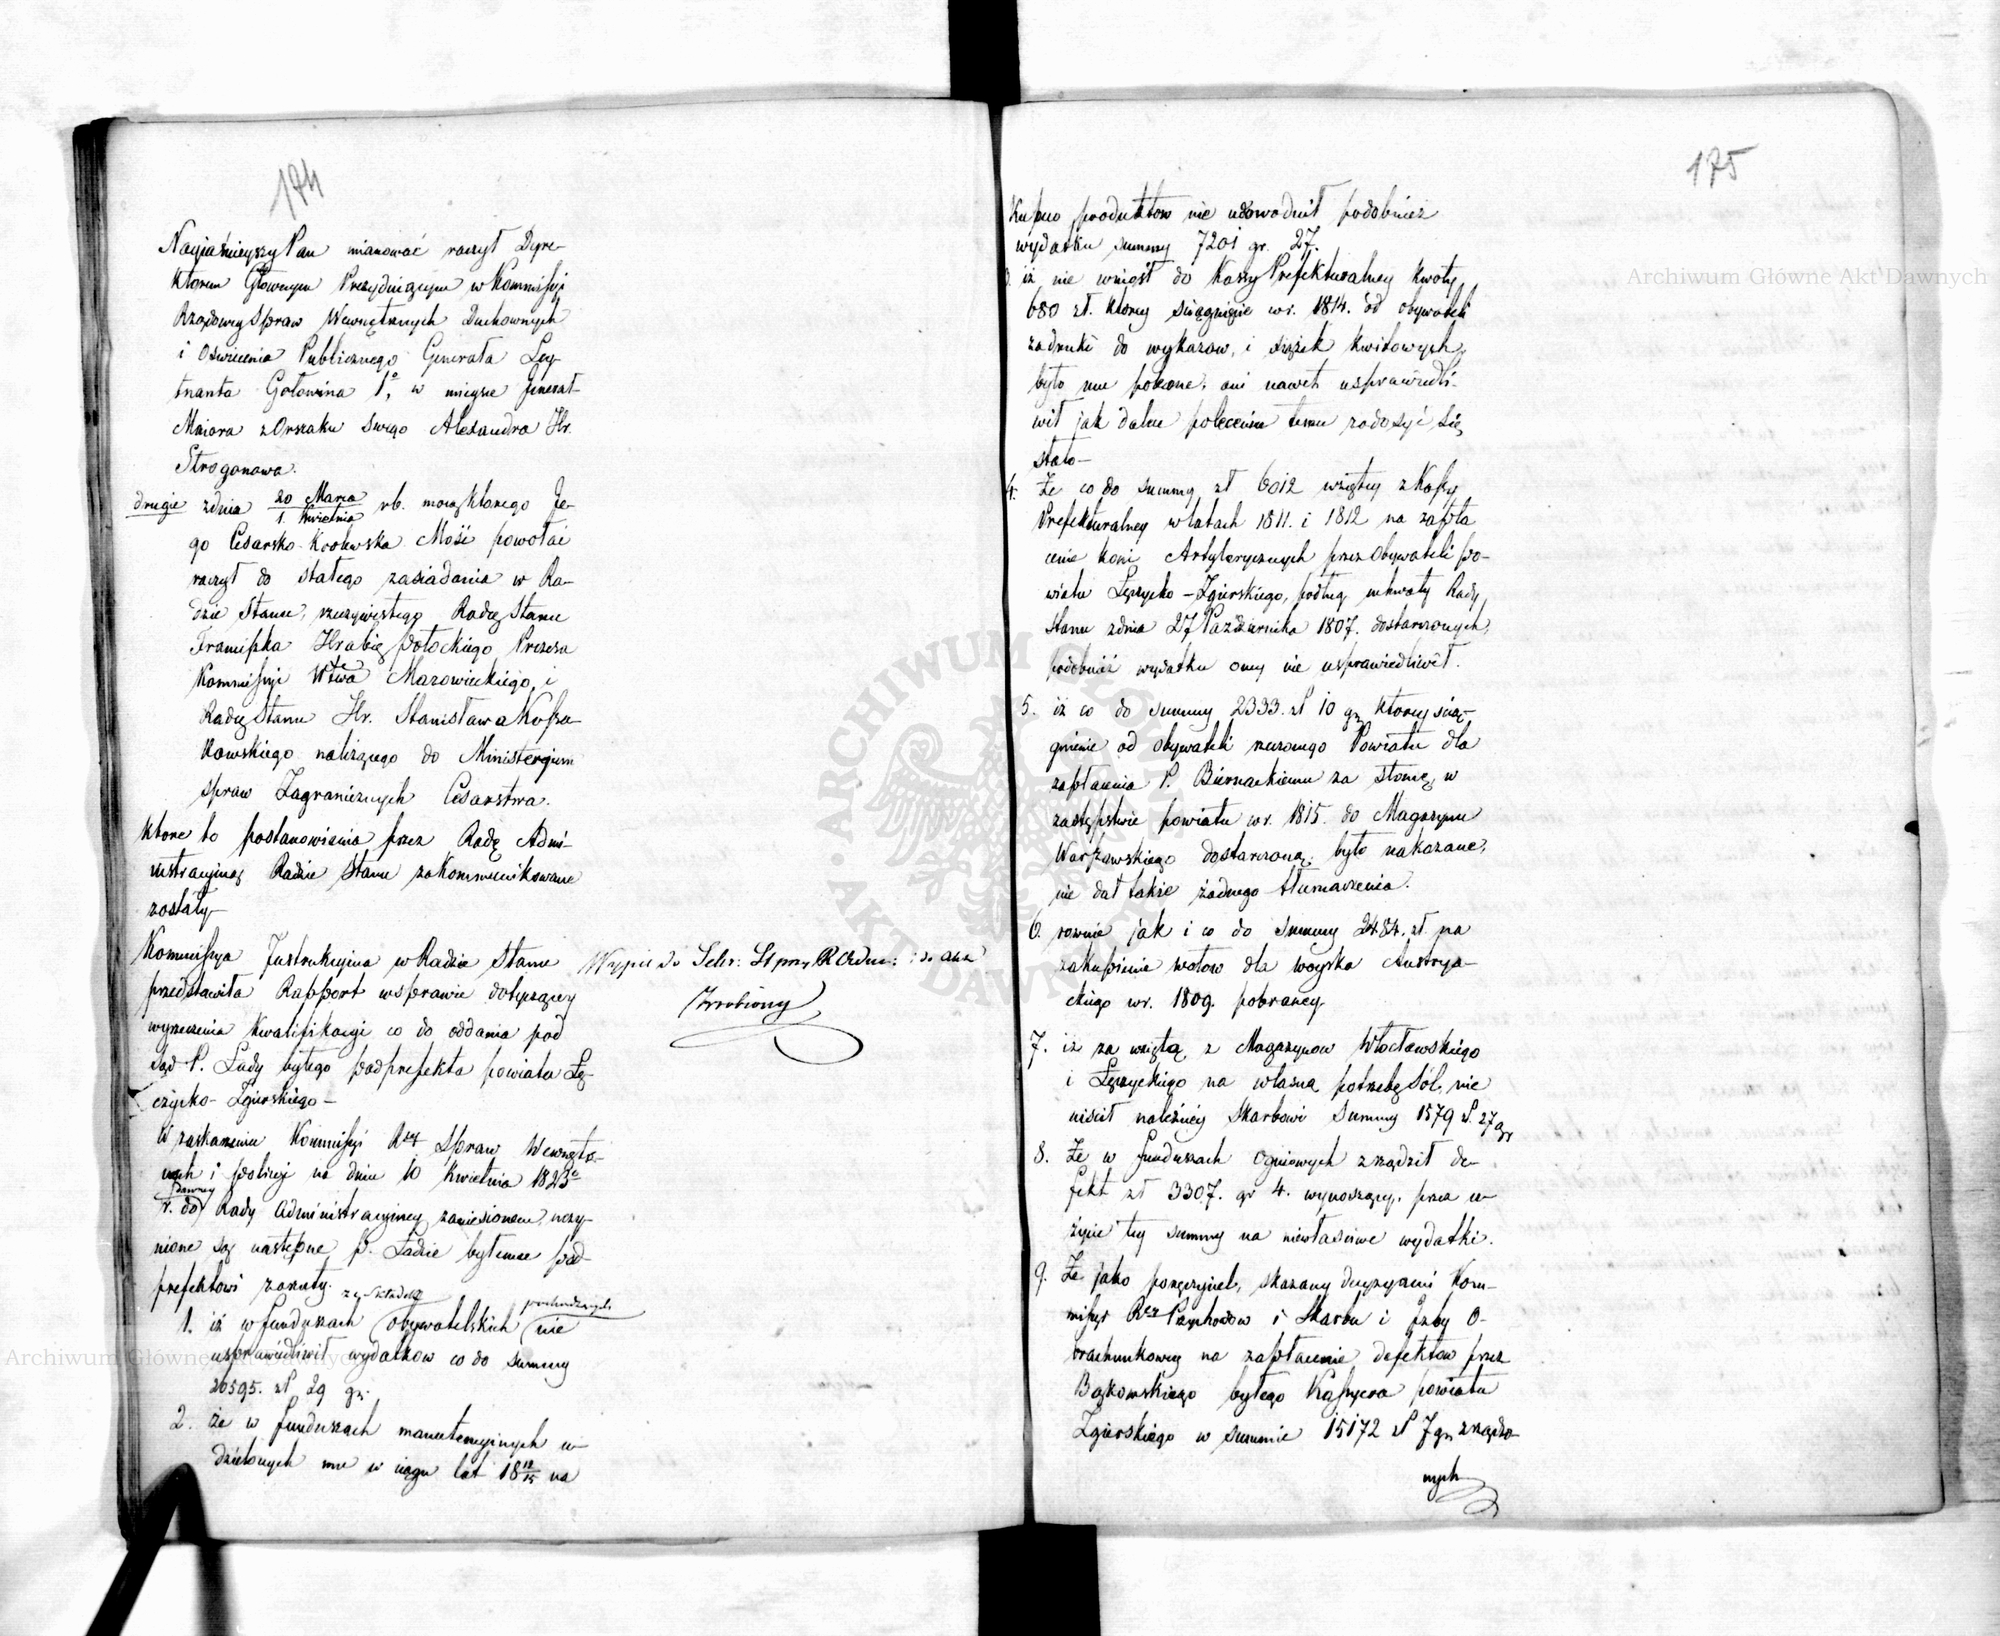 174
Nayjaśnieyszy Pan mianować raczył Dyre-
ktorem Głownym Prezyduiącym w Kommissyi
Rządowey Spraw Wewnętrznych Duchownych
i Oświecenia Publicznego Generała Ley-
tnanta Gołowina 1o, w mieysce Jenerał-
Maiora z Orszaku Swego Alexandra Hr.
Stroganowa.
drugie z dnia 20 Marca / 1. Kwietnia rb. mocą ktorego Je-
go Cesarsko-Krolewska Mość powołać
raczył do stałego zasiadania w Ra-
dzie Stanu, rzeczywistego Radcę Stanu
Franciszka Hrabię Potockiego Prezesa
Kommissyi Wtwa Mazowieckiego, i
Radcę Stanu Hr. Stanisława Kossa-
kowskiego należącego do Ministeryum
Spraw Zagranicznych Cesarstwa.
Ktore to postanowienia przez Radę Admi-
nistracyiną Radzie Stanu zakommunikowane
zostały-
Kommissya Instrukcyina w Radzie Stanu
przedstawiła Rapport w sprawie dotyczącey
wyrzeczenia kwalifikacyi co do oddania pod
Sąd P. Łady byłego podprefekta powiatu Łę-
czycko-Zgierskiego-
W zaskarzeniu Kommissyi Rząd Spraw Wewnętrz-
nych i policyi na dniu 10 Kwietnia 1823o
dawney
r. do Rady Administracyiney zaniesionem, uczy-
nione są następne p. Ładzie byłemu pod-
prefektowi zarzuty.
ze składek pochodzących
1. iż w funduszach obywatelskich nie
usprawiedliwił wydatkow co do summy
20595. zł 29 gr.
2. że w funduszach manutencyinych u-
dzielonych mu w ciągu lat 18 12/15 na
Wypis do Sekr: St przy R Adm: : do akt
Zrobiony
175
Kupno produktow nie udowodnił podobnież
wydatku summy 7201 gr. 27.
3. iż nie wniosł do Kassy Prefekturalney kwoty
680 zł. ktorey ściągnięcie w r. 1814. od obywateli
za druki do wykazow, i xiążek kwitowych,
było mu polecone, ani nawet usprawiedli-
wił jak dalece poleceniu temu zadosyć się
stało-
4. Że co do summy zł 6012 wziętey z Kassy
Prefekturalney w latach 1811. i 1812 na zapła
cenie koni Artylerycznych przez Obywateli po-
wiatu Łęczycko-Zgierskiego, podług uchwały Rady
Stanu z dnia 27 Października 1807. dostarczonych,
podobnież wydatku oney nie usprawiedliwił.
5. iż co do summy 2333. zł 10 gr ktorey ścią-
gnienie od obywateli rzeczonego Powiatu dla
zapłacenia P. Biernackiemu za słomę w
zastępstwie powiatu w r. 1815. do Magazynu
Warszawskiego dostarczoną, było nakazane,
nie dał także żadnego tłumaczenia.
6. rownie jak i co do Summy 2484. zł. na
zakupienie wołow dla woyska Austrya-
ckiego w r. 1809. pobraney.
7. iż za wziętą z Magazynow Włocławskiego
i Łęczyckiego na własną potrzebę Sól, nie
uiścił należnéy Skarbowi Summy 1579 zł. 27 gr
8. Że w funduszach Ogniowych zrządził de-
fekt zł 3307. gr 4. wynoszący, przez u-
życie tey summy na niewłaściwe wydatki.
9. Że jako poręczyciel, skazany decyzyami Kom-
missyi Rzą Przychodow i Skarbu i Izby O-
brachunkowey na zapłacenie defektow przez
Bąkowskiego byłego Kassyera powiatu
Zgierskiego w summie 15172 zł 7 gr zrządzo-
nych